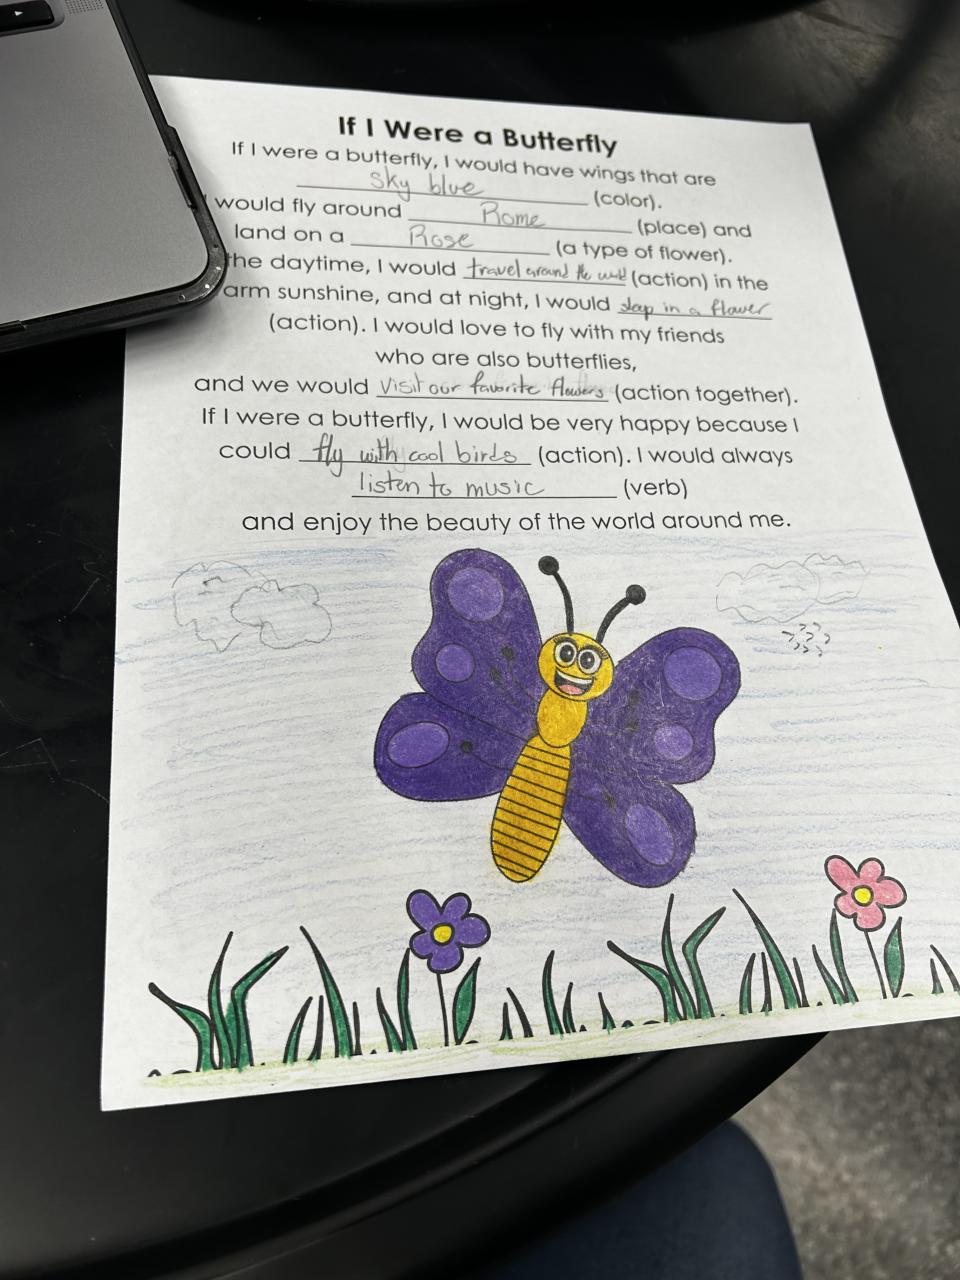 If I Were a Butterfly
If I were a butterfly, I would have wings that are
sky blue (color).
would fly around Rome (place) and
land on a Rose (a type of flower).
the daytime, I would travel around the world (action) in the
arm sunshine, and at night, I would sleep in a flower
(action). I would love to fly with my friends
who are also butterflies,
and we would visit our favorite flowers (action together).
If I were a butterfly, I would be very happy because I
could fly with cool birds (action). I would always
listen to music (verb)
and enjoy the beauty of the world around me.